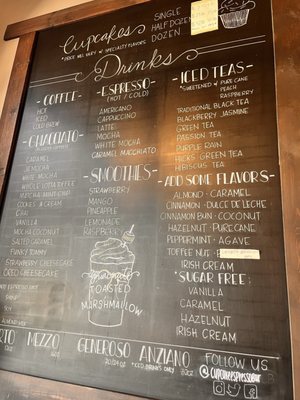 Cupcakes
*PRICE WILL VARY W/ SPECIALTY FLAVORS
SINGLE
HALF DOZEN
DOZEN
Drinks
-COFFEE-
HOT
ICED
COLD BREW
-CHACCIATO-
CARAMEL
WHITE MOCHA
COOKIES & CREAM
CHAI
VANILLA
MOCHA COCONUT
SALTED CARAMEL
STRAWBERRY CHEESECAKE
OREO CHEESECAKE
-ESPRESSO-
(HOT / COLD)
AMERICANO
CAPPUCCINO
LATTE
MOCHA
WHITE MOCHA
CARAMEL MACCHIATO
-SMOOTHIES-
STRAWBERRY
MANGO
PINEAPPLE
LEMONADE
RASPBERRY
TOASTED
MARSHMALLOW
-ICED TEAS-
*SWEETENED W/ PURE CANE
PEACH
RASPBERRY
TRADITIONAL BLACK TEA
BLACKBERRY JASMINE
GREEN TEA
PASSION TEA
PURPLE RAIN
HICKS GREEN TEA
HIBISCUS TEA
ADD SOME FLAVORS-
ALMOND · CARAMEL
CINNAMON · DULCE DE LECHE
CINNAMON BUN · COCONUT
HAZELNUT · PURE CANE
PEPPERMINT · AGAVE
TOFFEE NUT
IRISH CREAM
*SUGAR FREE:
VANILLA
CARAMEL
HAZELNUT
IRISH CREAM
MEZZO
GENEROSO
ANZIANO
*ICED DRINKS ONLY
32OZ
FOLLOW US
@CUPCAKEESPRESSOBAR